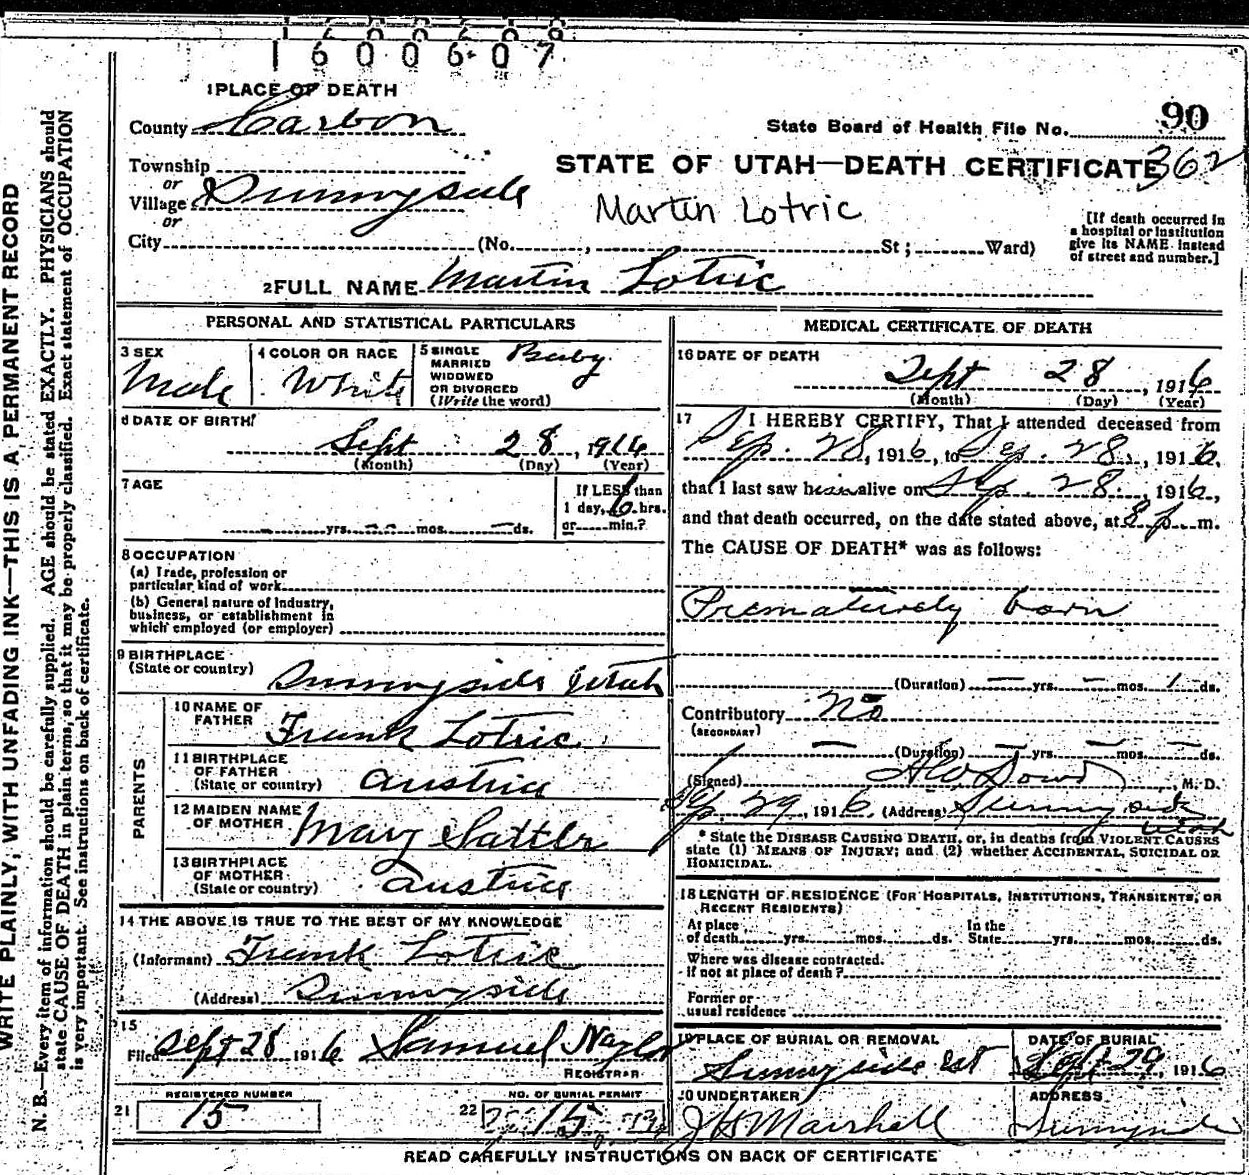 1600607
1 PLACE OF DEATH
County Carbon
90
State Board of Health File No.
Township
or
Village Sunnyside
or
STATE OF UTAH—DEATH CERTIFICATE 362
Martin Lotric
City (No. , St ; Ward)
[If death occurred in
a hospital or institution
give its NAME instead
of street and number.]
2 FULL NAME Martin Lotric
PERSONAL AND STATISTICAL PARTICULARS
3 SEX
Male
4 COLOR OR RACE
White
5 SINGLE
MARRIED
WIDOWED
OR DIVORCED
(Write the word)
Baby
6 DATE OF BIRTH
Sept 28, 1916
(Month) (Day) (Year)
7 AGE
yrs. mos. ds.
If LESS than
1 day, 6 hrs.
or min.?
8 OCCUPATION
(a) Trade, profession or
particular kind of work
(b) General nature of Industry,
business, or establishment in
which employed (or employer)
9 BIRTHPLACE
(State or country) Sunnyside Utah
PARENTS
10 NAME OF
FATHER Frank Lotric
11 BIRTHPLACE
OF FATHER
(State or country) Austria
12 MAIDEN NAME
OF MOTHER Mary Sattler
13 BIRTHPLACE
OF MOTHER
(State or country) Austria
14 THE ABOVE IS TRUE TO THE BEST OF MY KNOWLEDGE
(Informant) Frank Lotric
(Address) Sunnyside
15
Filed Sept 28 1916 Samuel Naylor
REGISTRAR
21 REGISTERED NUMBER
15
22 NO. OF BURIAL PERMIT
15
MEDICAL CERTIFICATE OF DEATH
16 DATE OF DEATH
Sept 28, 1916
(Month) (Day) (Year)
17 I HEREBY CERTIFY, That I attended deceased from
Sep. 28, 1916, to Sep. 28, 1916,
that I last saw him alive on Sep. 28, 1916,
and that death occurred, on the date stated above, at 8 p m.
The CAUSE OF DEATH* was as follows:
Prematurely born
(Duration) — yrs. — mos. 1 ds.
Contributory No
(SECONDARY)
— (Duration) — yrs. — mos. — ds.
(Signed) Dowd, M. D.
Sep. 29, 1916 (Address) Sunnyside
Utah
* State the DISEASE CAUSING DEATH, or, in deaths from VIOLENT CAUSES
state (1) MEANS OF INJURY; and (2) whether ACCIDENTAL, SUICIDAL OR
HOMICIDAL.
18 LENGTH OF RESIDENCE (FOR HOSPITALS, INSTITUTIONS, TRANSIENTS, OR
RECENT RESIDENTS)
At place
of death yrs. mos. ds.
In the
State yrs. mos. ds.
Where was disease contracted.
if not at place of death?
Former or
usual residence
19 PLACE OF BURIAL OR REMOVAL
Sunnyside Ut
DATE OF BURIAL
Sept 29, 1916
20 UNDERTAKER
J H Marshell
ADDRESS
Sunnyside
READ CAREFULLY INSTRUCTIONS ON BACK OF CERTIFICATE
WRITE PLAINLY, WITH UNFADING INK—THIS IS A PERMANENT RECORD
N. B.—Every item of information should be carefully supplied. AGE should be stated EXACTLY. PHYSICIANS should
state CAUSE OF DEATH in plain terms, so that it may be properly classified. Exact statement of OCCUPATION
is very important. See instructions on back of certificate.